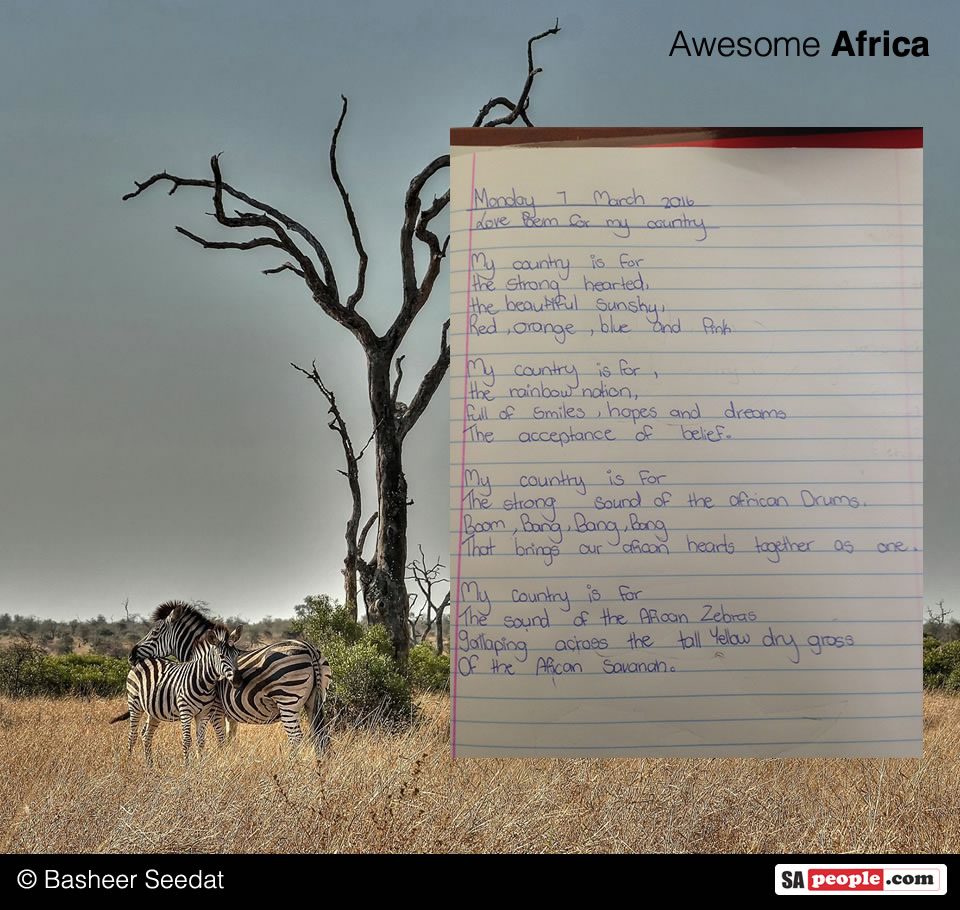 Awesome Africa
Monday 7 March 2016
Love Poem for my country
My country is for
the strong hearted,
the beautiful sunshy,
Red, orange, blue and Pink
My country is for,
the rainbow nation,
full of smiles, hopes and dreams
The acceptance of belief.
My country is for
The strong sound of the african Drums.
Boom, Bang, Bang, Bang
That brings our african hearts together as one.
My country is for
The sound of the African Zebras
gallaping across the tall Yelow dry grass
Of the African Savanah.
© Basheer Seedat
SA people.com